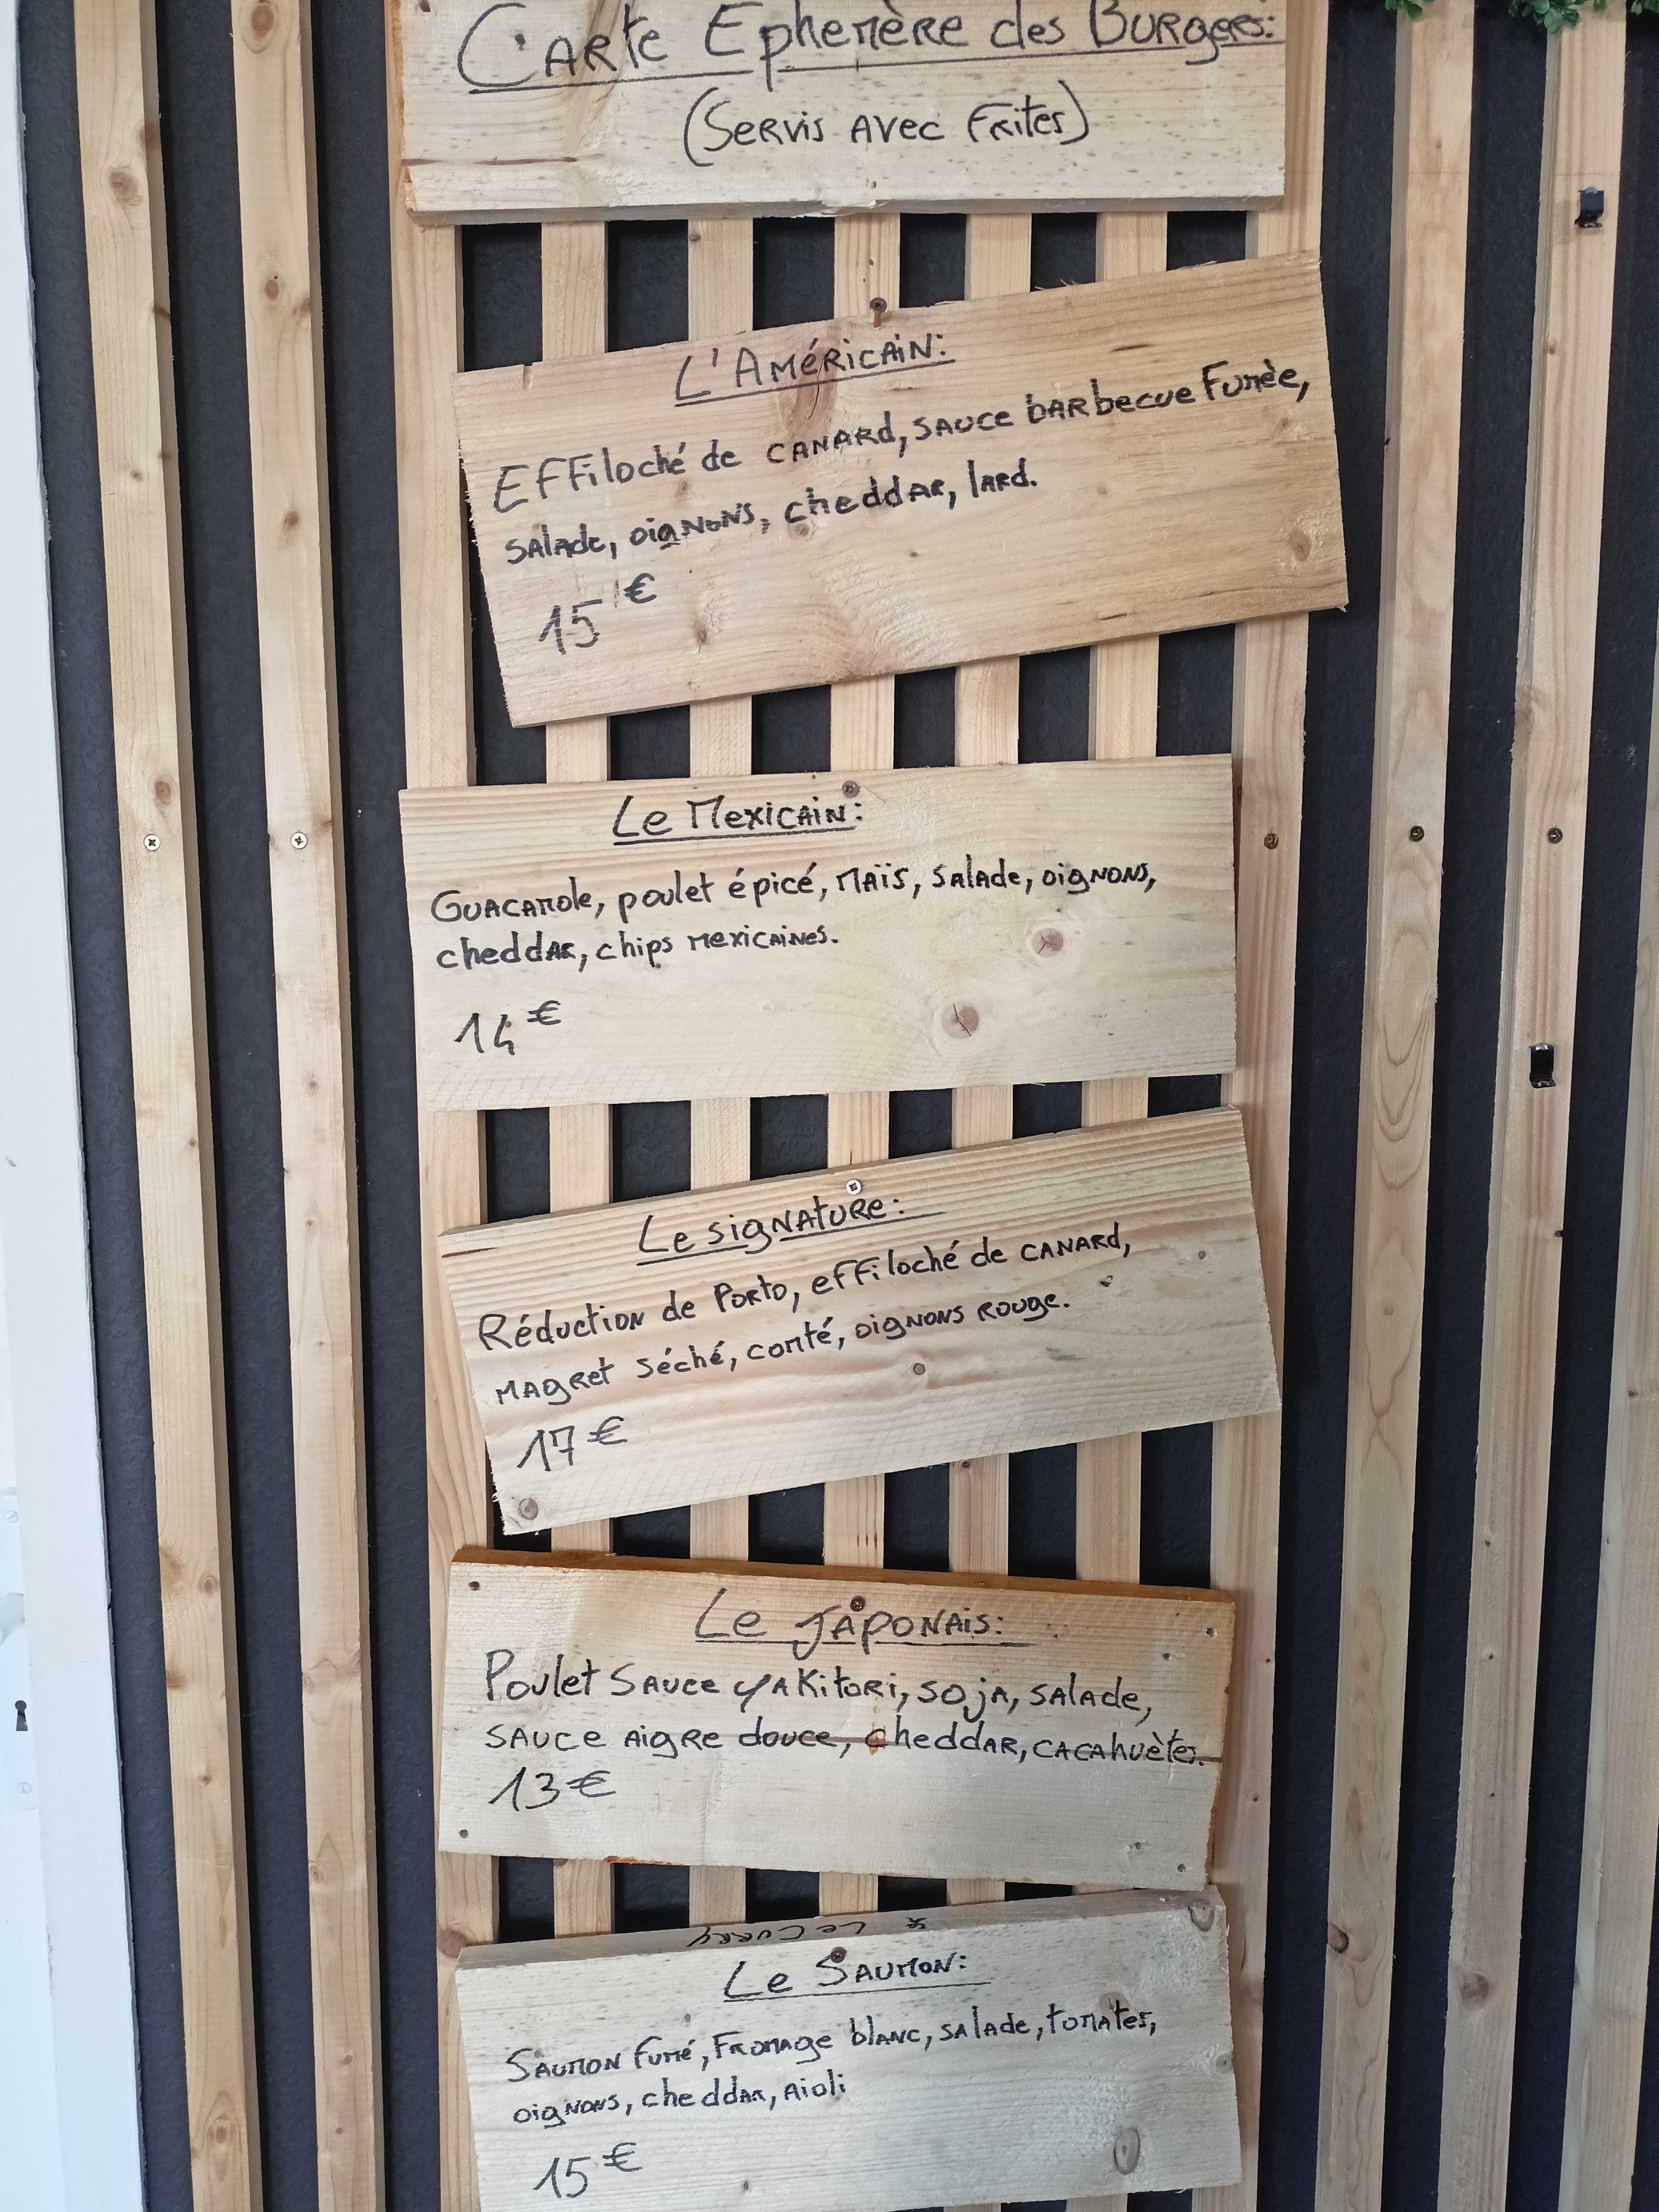 Carte Ephemère des Burgers:
(Servis avec Frites)
L'Américain:
Effiloché de canard, sauce barbecue Fumèe,
salade, oignons, cheddar, lard.
15€
Le Mexicain:
Guacamole, poulet épicé, maïs, salade, oignons,
cheddar, chips mexicaines.
14€
Le signature:
Réduction de Porto, effiloché de canard,
magret séché, comté, oignons rouge.
17€
Le Japonais:
Poulet sauce yakitori, soja, salade,
sauce aigre douce, cheddar, cacahuètes.
13€
* Le Curry
Le Saumon:
Saumon fumé, Fromage blanc, salade, tomates,
oignons, cheddar, aioli
15€